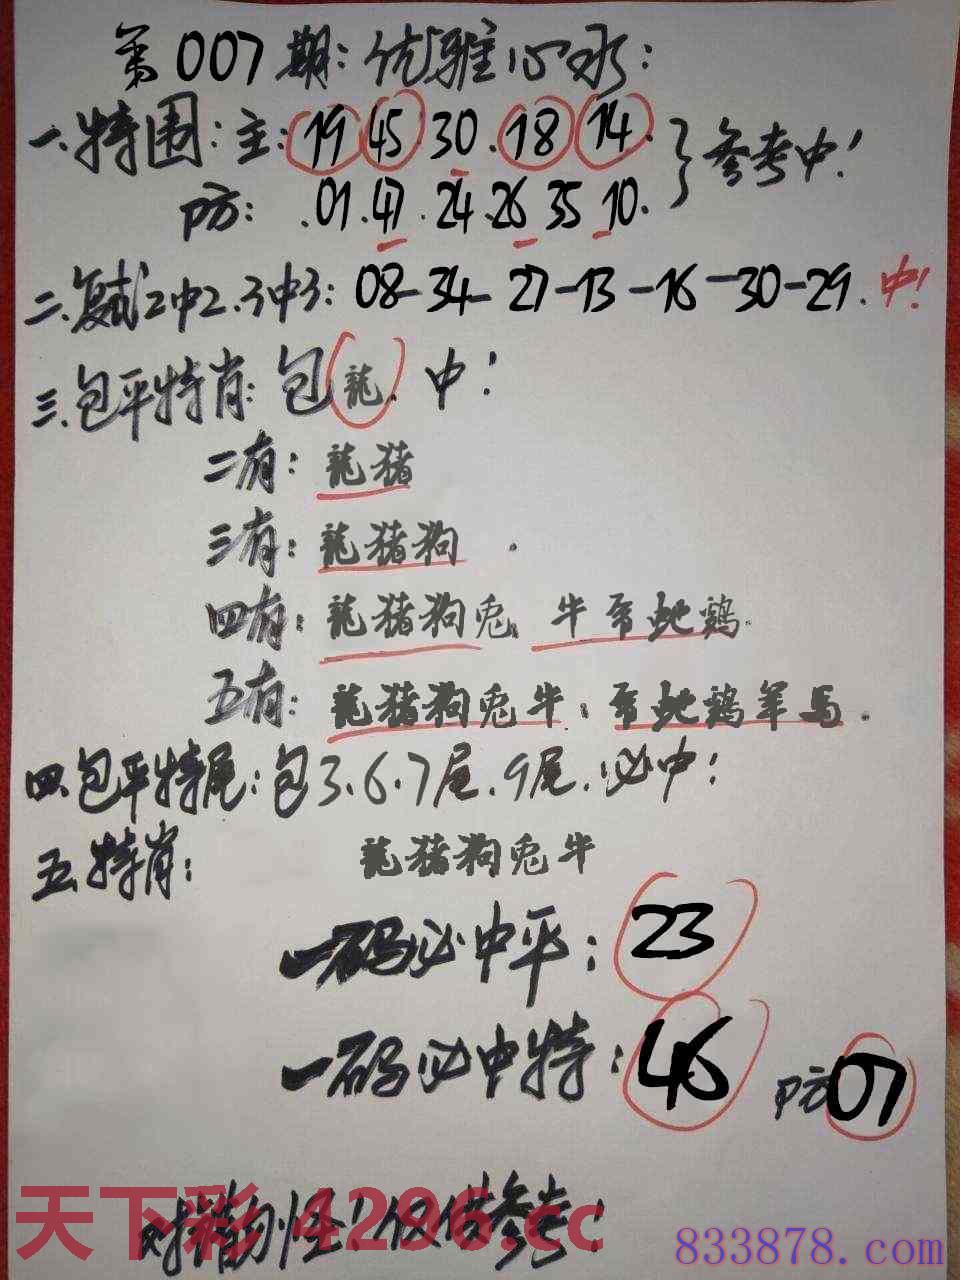 第007期:优雅心水:
一.特围:主:19 45.30.18 14.}参考中!
防:.01.47.24.26 35 10.
二.复试2中2.3中3:08-34-27-13-16-30-29.中!
三.包平特肖:包龍.中!
二有:龍猪
三有:龍猪狗.
四有:龍猪狗兎.牛.蛇鷄.
五有:龍猪狗兎牛:蛇鷄羊馬.
四.包平特尾:包3.6.7尾.9尾.必中!
五.特肖:龍猪狗兎牛
一码必中平:23
一码必中特:46 防07
天下彩 4296.cc
仅供参考!
833878.com